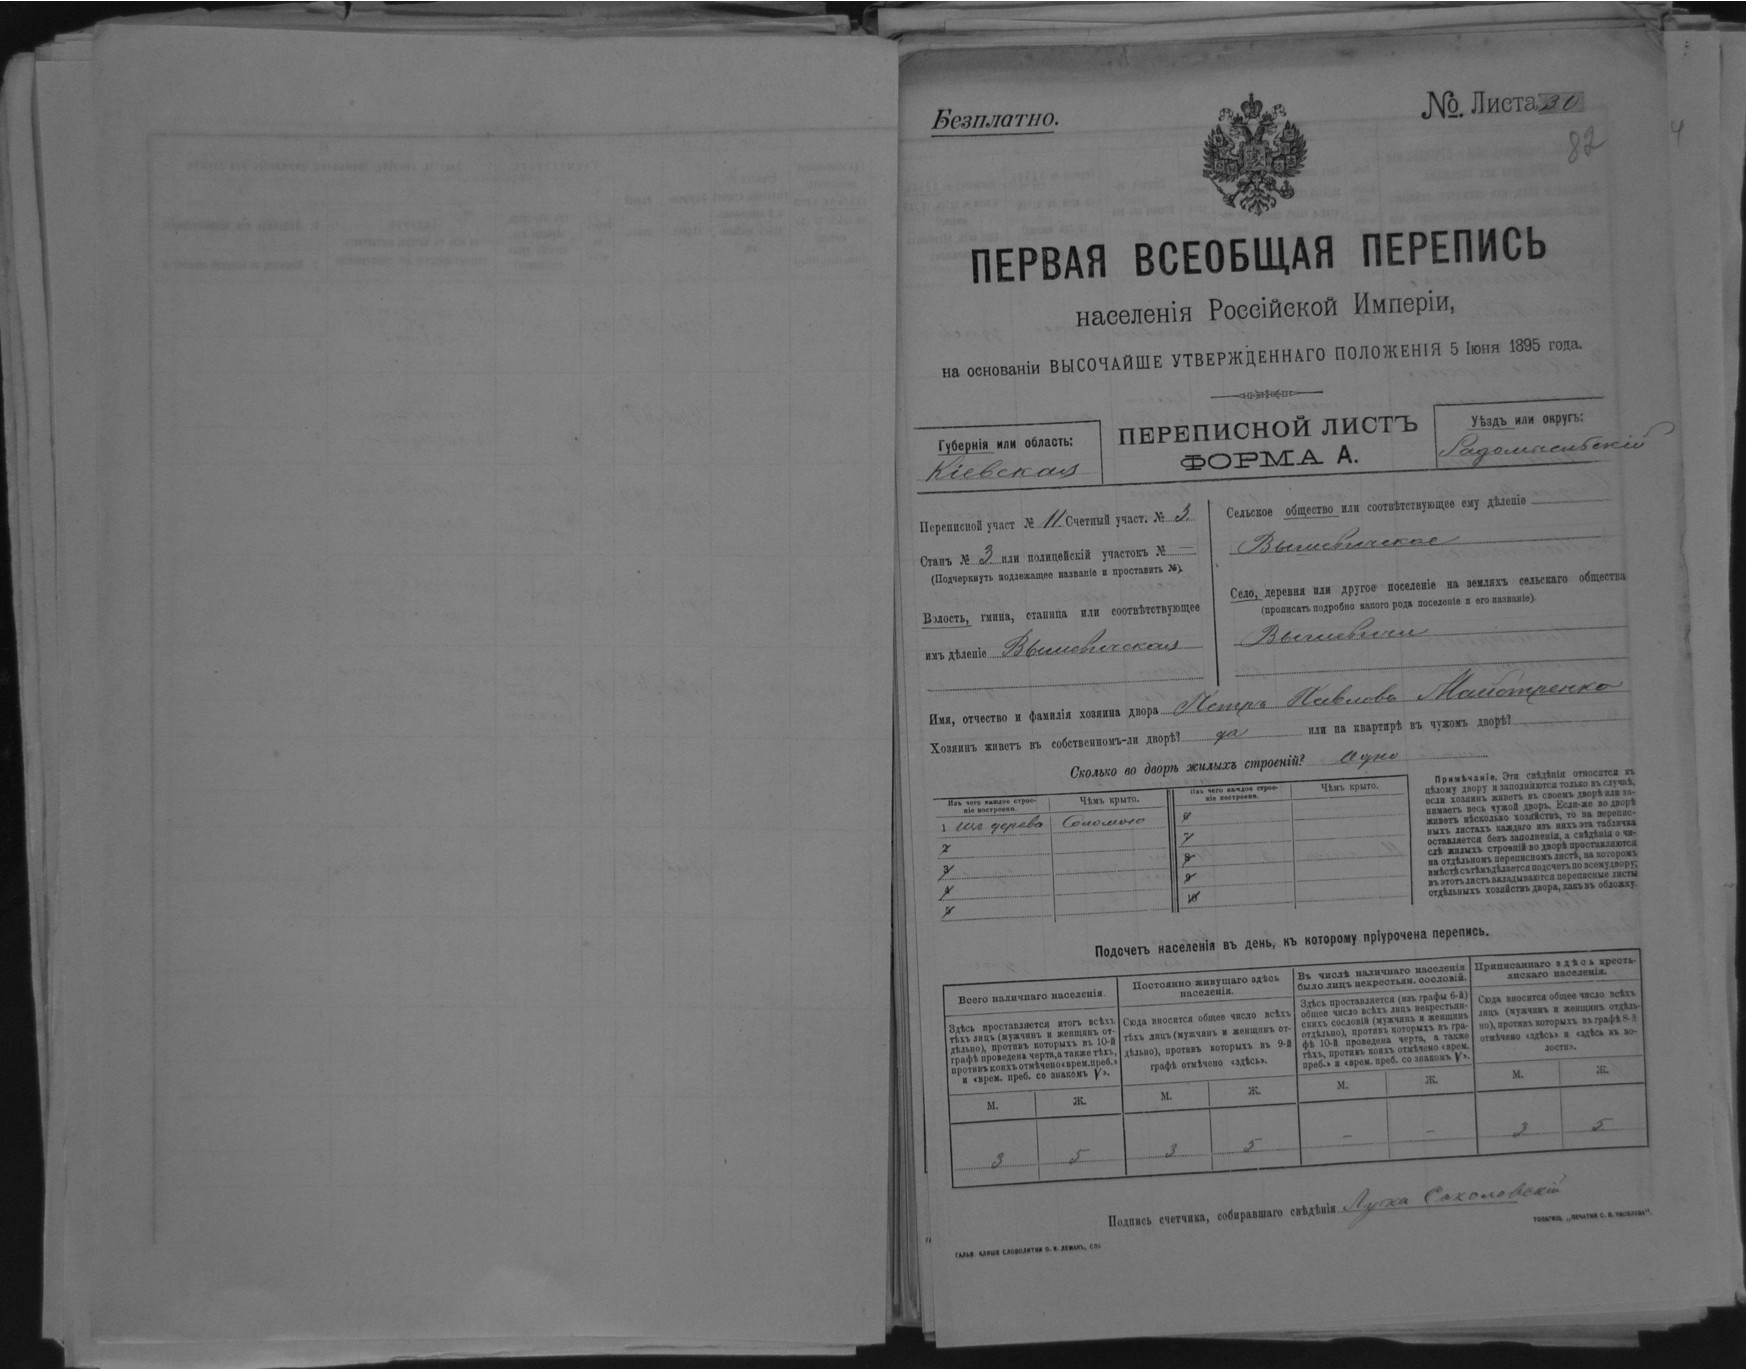 Безплатно.
№. Листа 30
82
ПЕРВАЯ ВСЕОБЩАЯ ПЕРЕПИСЬ
населенія Россійской Имперіи,
на основаніи ВЫСОЧАЙШЕ УТВЕРЖДЕННАГО ПОЛОЖЕНІЯ 5 Іюня 1895 года.
Губернія или область:
Кіевская
ПЕРЕПИСНОЙ ЛИСТЪ
ФОРМА А.
Уѣздъ или округъ:
Радомысльскій
Переписной участ № 11 Счетный участ. № 3
Станъ № 3 или полицейскій участокъ № —
(Подчеркнуть подлежащее названіе и проставить №).
Волость, гмина, станица или соотвѣтствующее
имъ дѣленіе Вышевичская
Сельское общество или соотвѣтствующее ему дѣленіе
Вышевичское
Село, деревня или другое поселеніе на земляхъ сельскаго общества
(прописать подробно какого рода поселеніе и его названіе).
Вышевичи
Имя, отчество и фамилія хозяина двора Петръ Павловъ Майстренко
Хозяинъ живетъ въ собственномъ-ли дворѣ? да или на квартирѣ въ чужомъ дворѣ?
Сколько во дворѣ жилыхъ строеній? одно
Изъ чего каждое строе-
ніе построено.
Чѣмъ крыто.
1 изъ дерева Соломою
2
3
4
5
Изъ чего каждое строе-
ніе построено.
Чѣмъ крыто.
6
7
8
9
10
Примѣчаніе. Эти свѣдѣнія относятся къ
цѣлому двору и заполняются только въ случаѣ,
если хозяинъ живетъ въ своемъ дворѣ или за-
нимаетъ весь чужой дворъ. Если-же во дворѣ
живетъ нѣсколько хозяйствъ, то на перепис-
ныхъ листахъ каждаго изъ нихъ эта табличка
оставляется безъ заполненія, а свѣдѣнія о чи-
слѣ жилыхъ строеній во дворѣ проставляются
на отдѣльномъ переписномъ листѣ, на которомъ
вмѣстѣ съ тѣмъ дѣлается подсчетъ по всему двору;
въ этотъ листъ вкладываются переписные листы
отдѣльныхъ хозяйствъ двора, какъ въ обложку.
Подсчетъ населенія въ день, къ которому пріурочена перепись.
Всего наличнаго населенія.
Здѣсь проставляется итогъ всѣхъ
тѣхъ лицъ (мужчинъ и женщинъ от-
дѣльно), противъ которыхъ въ 10-й
графѣ проведена черта, а также тѣхъ,
противъ коихъ отмѣчено «врем. преб.»
и «врем. преб. со знакомъ V».
М. Ж.
3 5
Постоянно живущаго здѣсь
населенія.
Сюда вносится общее число всѣхъ
тѣхъ лицъ (мужчинъ и женщинъ от-
дѣльно), противъ которыхъ въ 9-й
графѣ отмѣчено «здѣсь».
М. Ж.
3 5
Въ числѣ наличнаго населенія
было лицъ некрестьян. сословій.
Здѣсь проставляется (изъ графы 6-й)
общее число всѣхъ лицъ некрестьян-
скихъ сословій (мужчинъ и женщинъ
отдѣльно), противъ которыхъ въ гра-
фѣ 10-й проведена черта, а также
тѣхъ, противъ коихъ отмѣчено «врем.
преб.» и «врем. преб. со знакомъ V».
М. Ж.
— —
Приписаннаго здѣсь кресть-
янскаго населенія.
Сюда вносится общее число всѣхъ
лицъ (мужчинъ и женщинъ отдѣль-
но), противъ которыхъ въ графѣ 8-й
отмѣчено «здѣсь» и «здѣсь въ во-
лости».
М. Ж.
3 5
Подпись счетчика, собиравшаго свѣдѣнія Лука Соколовскій
ГАЛЬВ. КЛИШЕ СЛОВОЛИТНИ О. И. ЛЕМАНЪ, СПБ
ТОВАРИЩ. „ПЕЧАТНЯ С. П. ЯКОВЛЕВА".